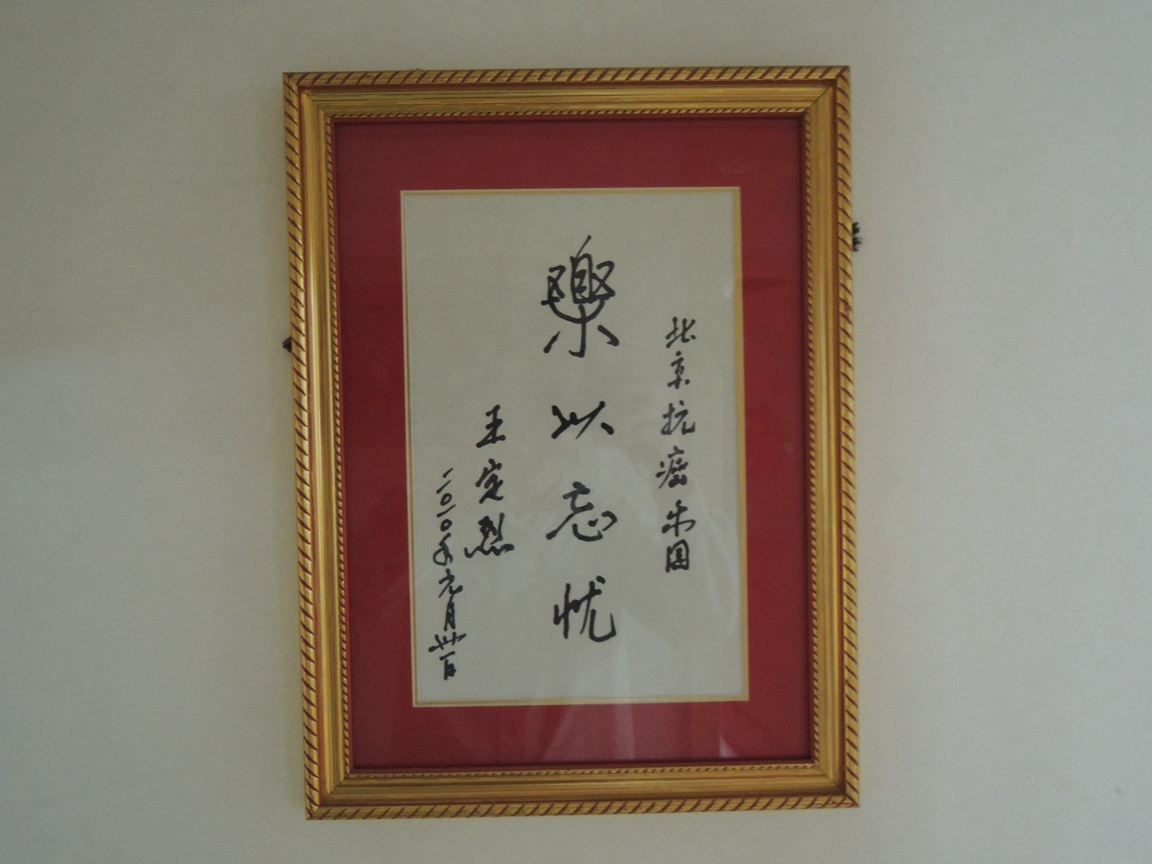 北京抗癌乐园
樂以忘忧
王定烈
二〇一〇年元月卅一日